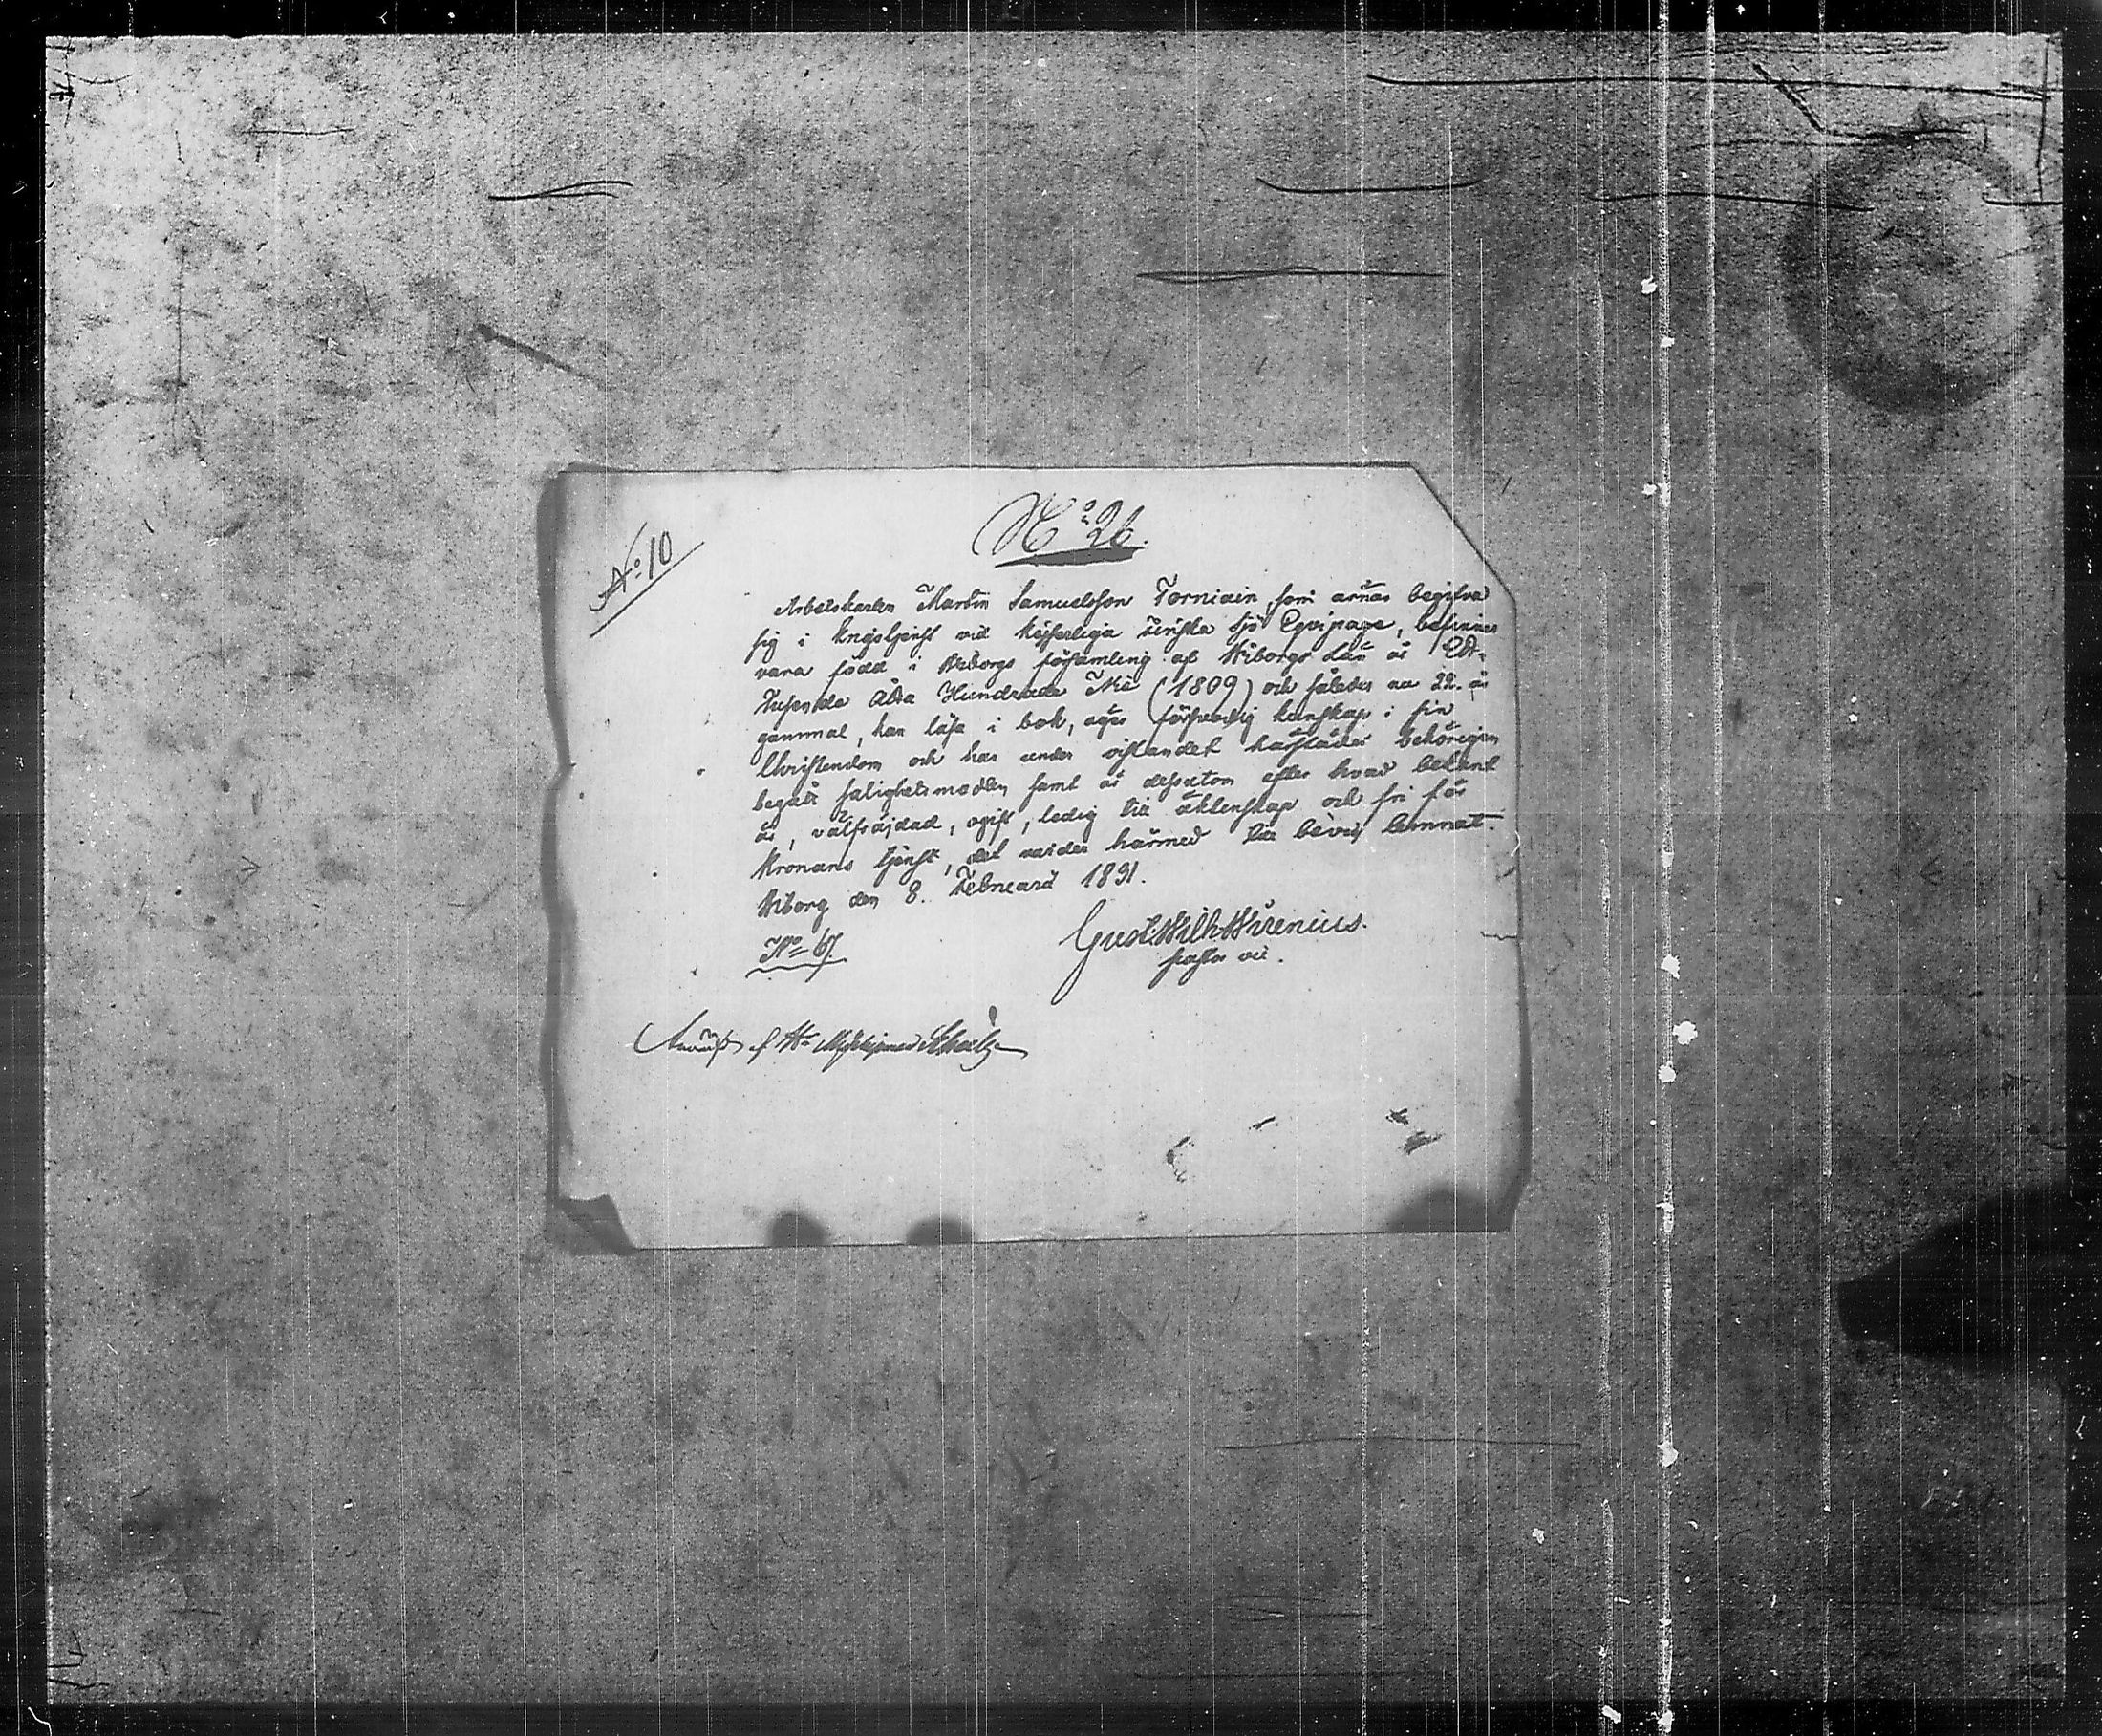 No 10
No 26.
Arbetskarlen Martin Samuelsson Torniain, som ärnar begifva
sig i krigstjenst vid Kejserliga finska Sjö Eqvipage, befinnes
vara född i Wiborgs församling af Wiborgs Län år Ett-
tusende Åtta Hundrade Nie (1809) och således nu 22. år
gammal, kan läsa i bok, äger försvarlig kunskap i sin
Christendom och har under vistandet härstädes behörigen
begått salighetsmedlen samt är dessutom efter hvad bekant
är, välfräjdad, ogift, ledig till äktenskap och fri för
Kronans tjenst, det varder härmed till bevis lemnat.
Wiborg den 8. Februarii 1831.
No 67.
Gust. Wilh. Wirenius.
pastor vic.